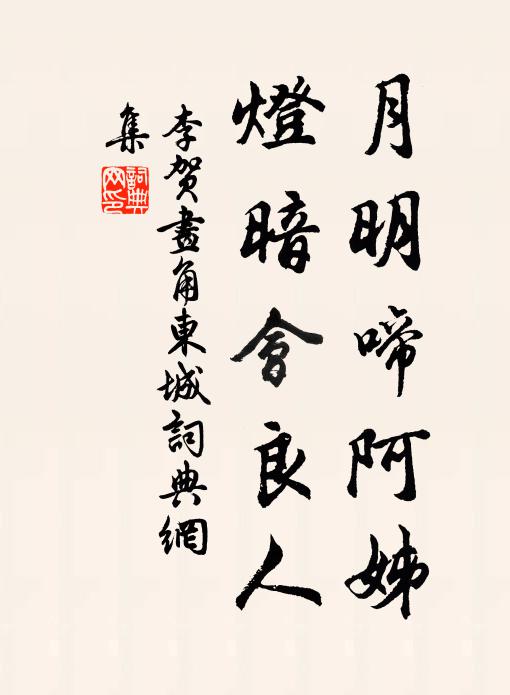 月明啼阿姊
燈暗會良人
李賀畫角東城詞典網
集
詞典網印